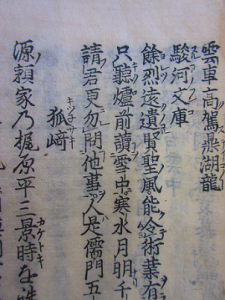 雲車高駕鼎湖龍
駿河文庫
餘烈遠遺賢聖風能令術業
只聽爐前讀雪中寒水月明千
請君更勿問他事是儒門五
狐崎
キツネサキ
源頼家乃梶原平三景時を